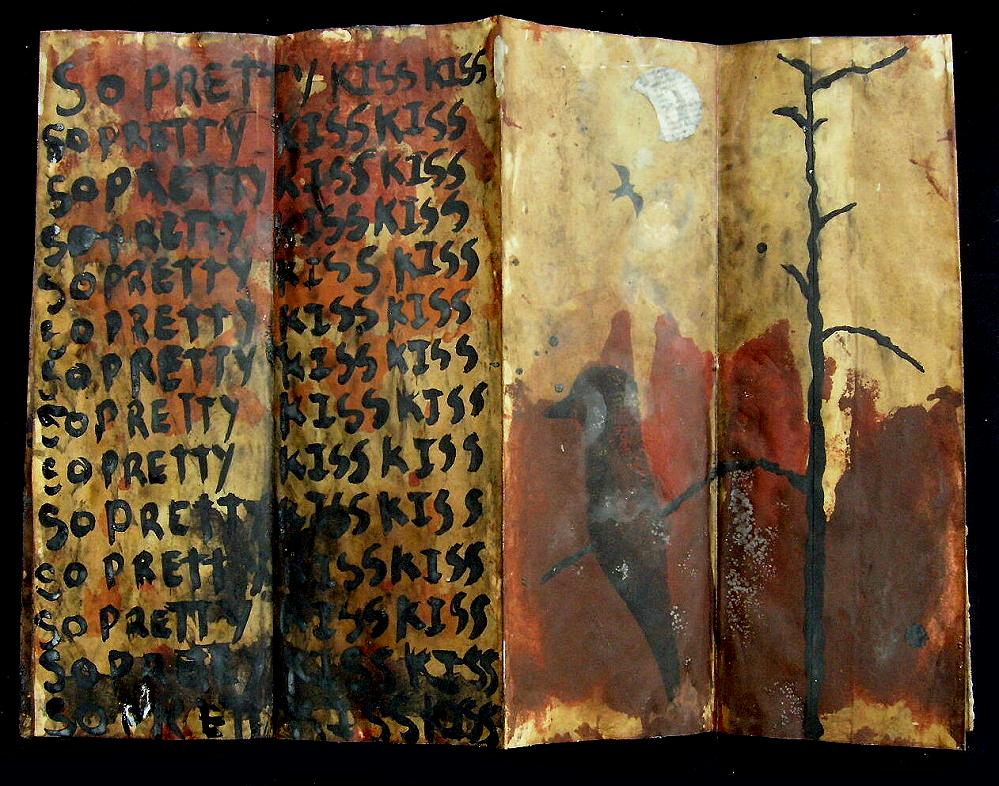 SO PRETTY KISS KISS
SO PRETTY KISS KISS
SO PRETTY KISS KISS
SO PRETTY KISS KISS
SO PRETTY KISS KISS
SO PRETTY KISS KISS
SO PRETTY KISS KISS
SO PRETTY KISS KISS
SO PRETTY KISS KISS
SO PRETTY KISS KISS
SO PRETTY KISS KISS
SO PRETTY KISS KISS
SO PRETTY KISS KISS
SO PRETTY KISS KISS